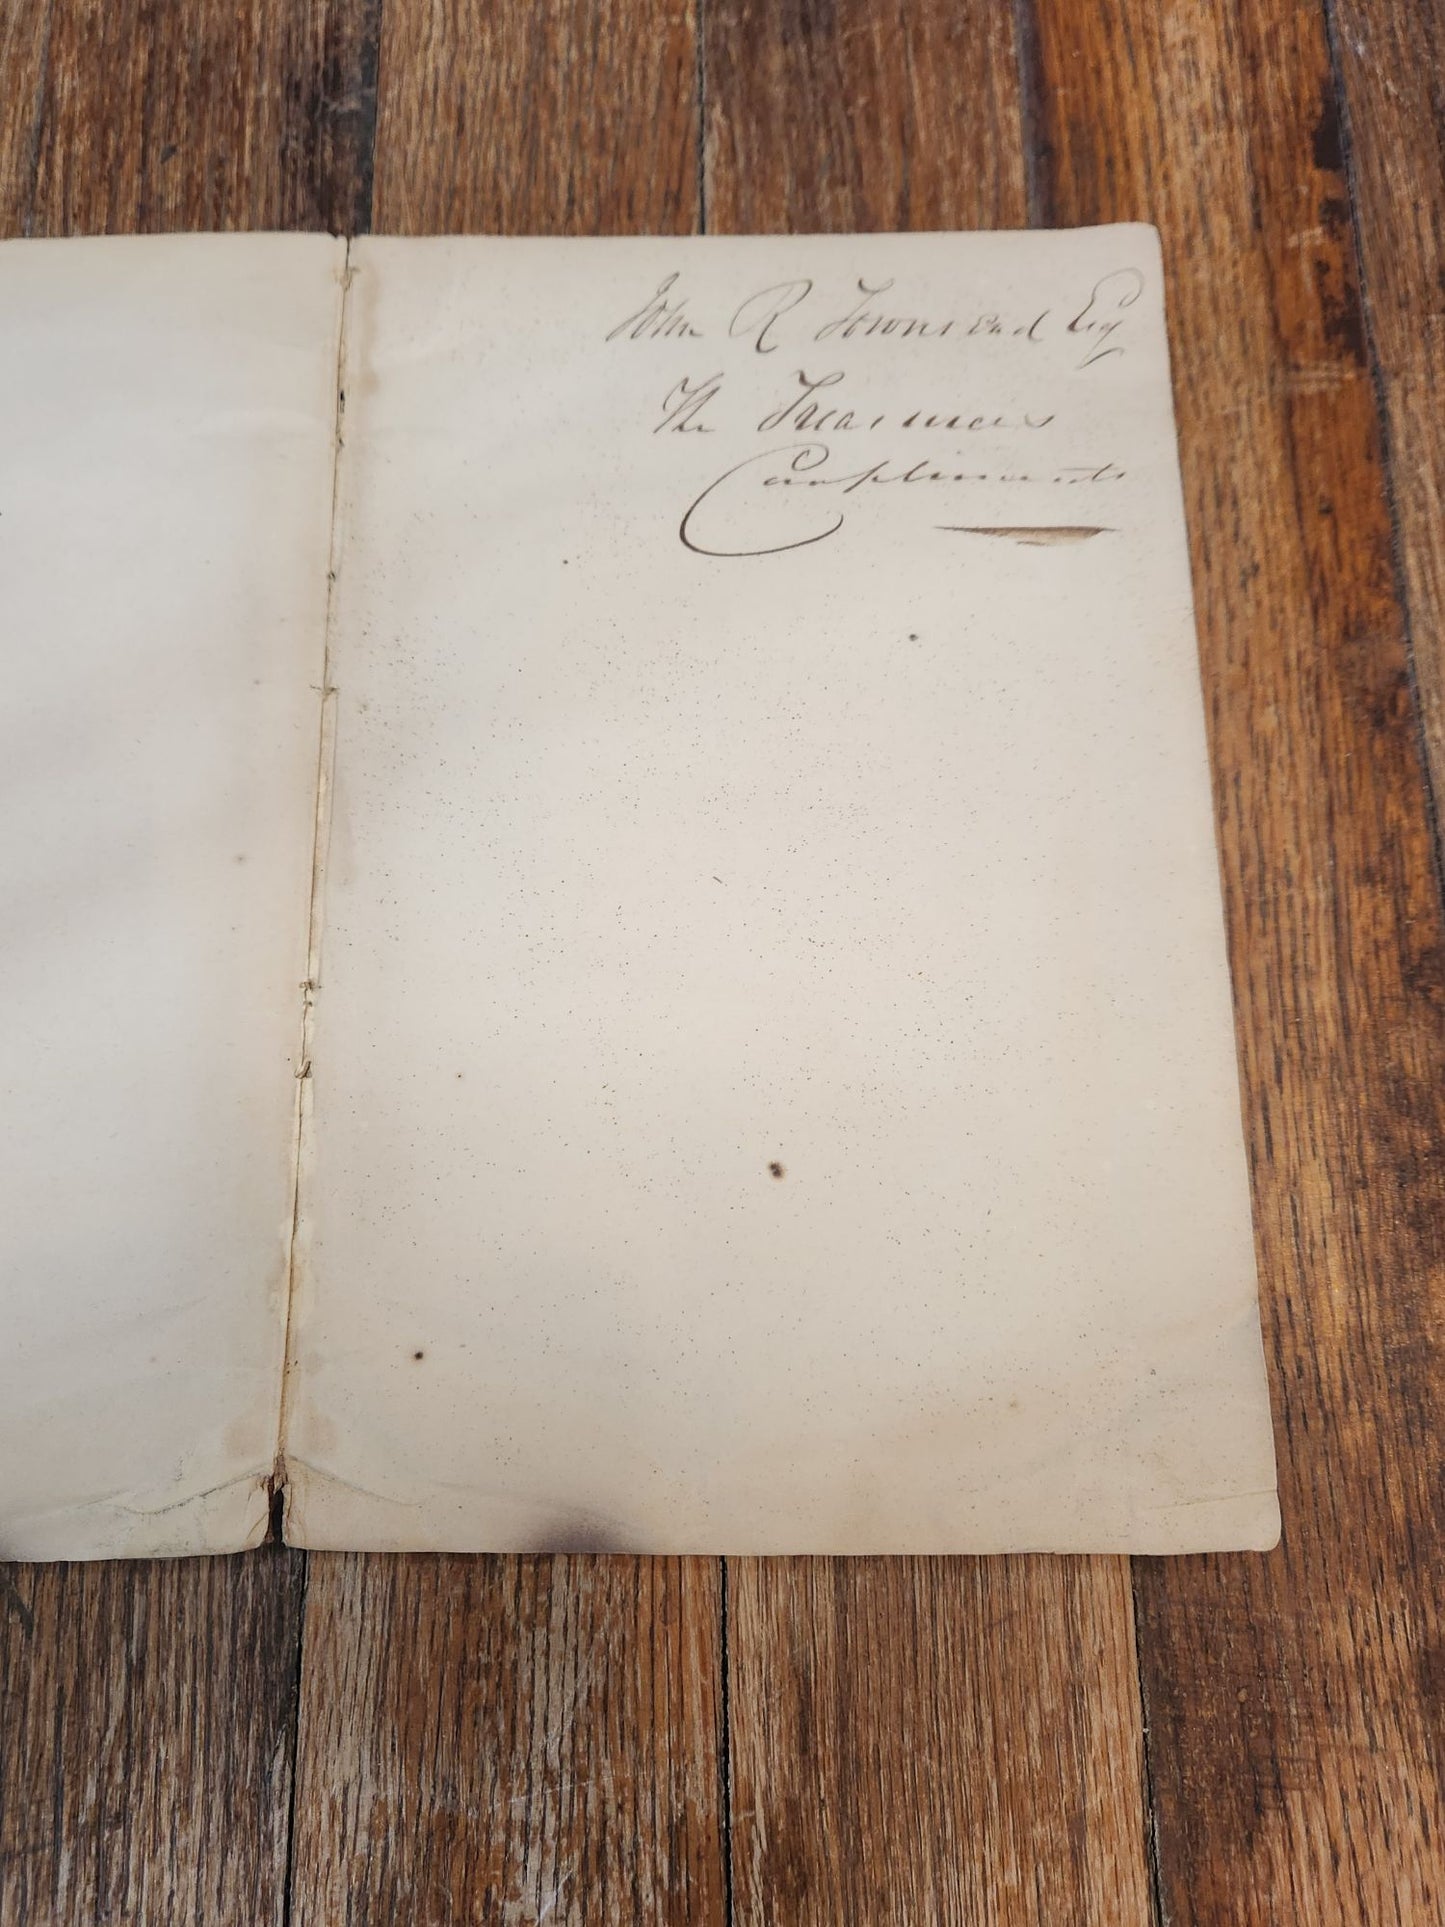 John R Townsend Esq
The Treasurers
Compliments